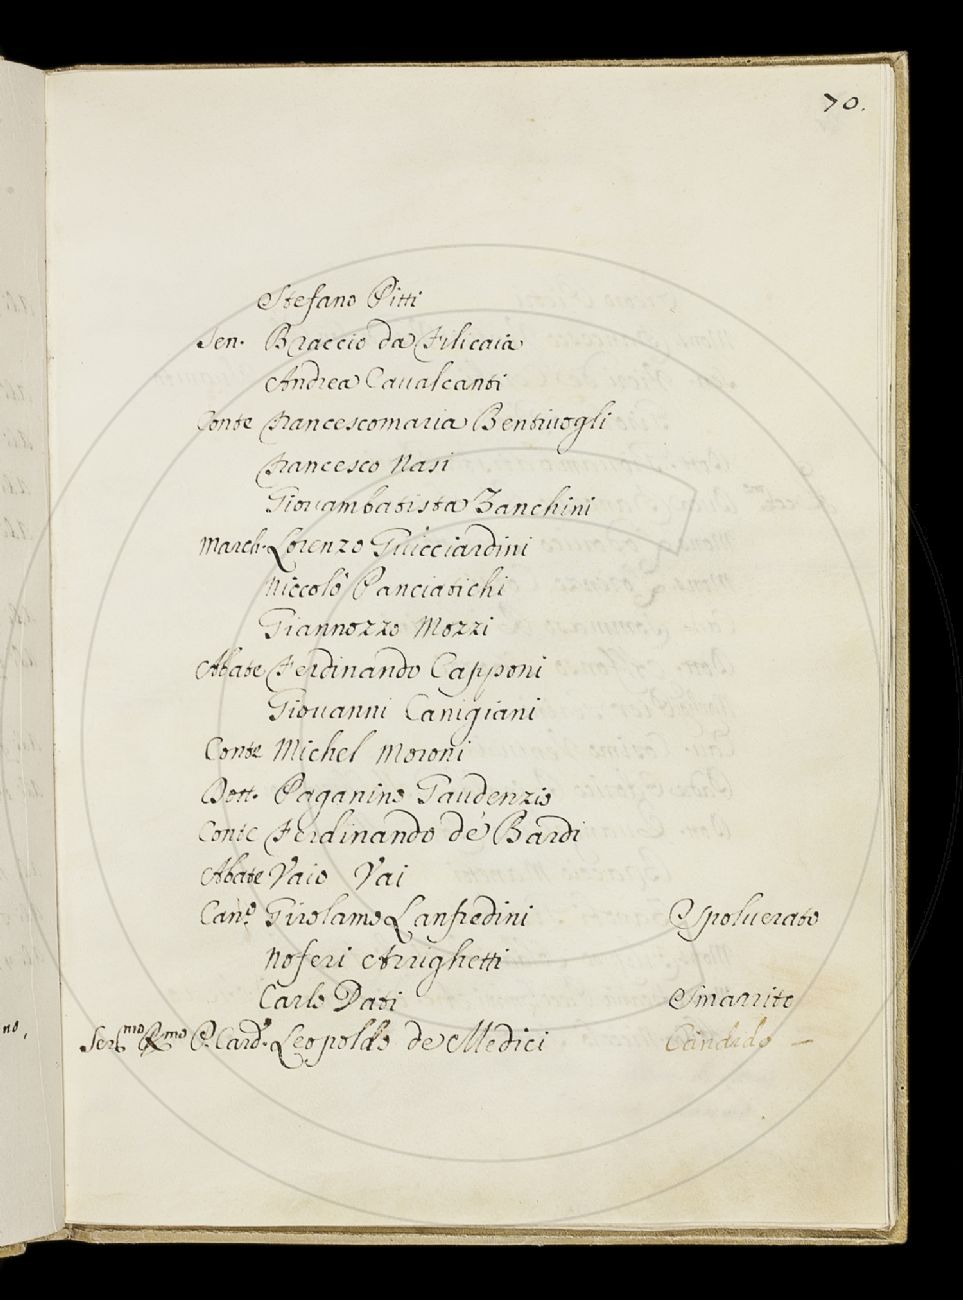 70.
Stefano Pitti
Sen. Braccio da Filicaia
Andrea Caualcanti
Conte Francescomaria Bentiuogli
Francesco Nasi
Giouambatista Zanchini
March. Lorenzo Guicciardini
Niccolò Panciatichi
Giannozzo Mozzi
Abate Ferdinando Capponi
Giouanni Canigiani
Conte Michel Moroni
Dott. Paganino Gaudenzio
Conte Ferdinando de' Bardi
Abate Vaio Vai
Can.º Girolamo Lanfredini Spoluerato
Noferi Arrighetti
Carlo Dati Smarrito
Ser.mo Rmo P. Card. Leopoldo de Medici Candido –